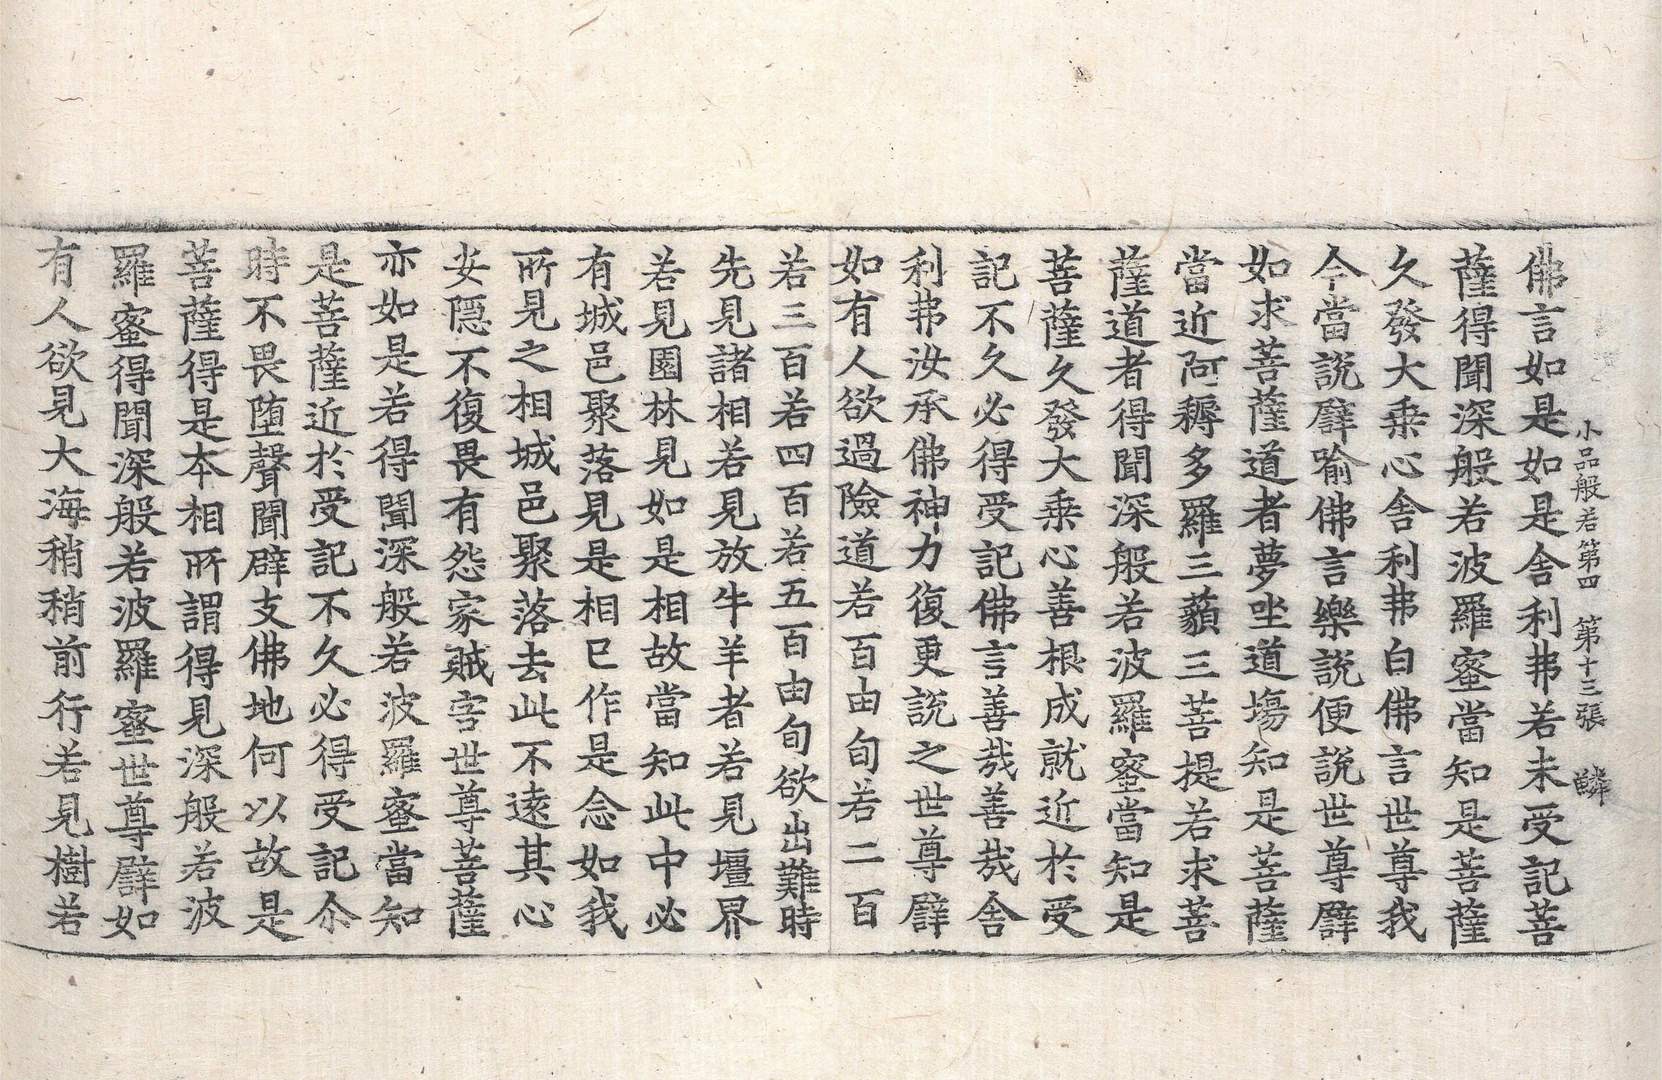 小品般若第四　第十三張　鱗
佛言如是如是舎利弗若未受記菩
薩得聞深般若波羅蜜當知是菩薩
久發大乗心舎利弗白佛言世尊我
今當說譬喻佛言樂說便說世尊譬
如求菩薩道者夢坐道場知是菩薩
當近阿耨多羅三藐三菩提若求菩
薩道者得聞深般若波羅蜜當知是
菩薩久發大乗心善根成就近於受
記不久必得受記佛言善哉善哉舎
利弗汝承佛神力復更說之世尊譬
如有人欲過險道若百由旬若二百
若三百若四百若五百由旬欲出難時
先見諸相若見放牛羊者若見壃界
若見園林見如是相故當知此中必
有城邑聚落見是相已作是念如我
所見之相城邑聚落去此不遠其心
安隱不復畏有怨家賊害世尊菩薩
亦如是若得聞深般若波羅蜜當知
是菩薩近於受記不久必得受記尒
時不畏墮聲聞辟支佛地何以故是
菩薩得是本相所謂得見深般若波
羅蜜得聞深般若波羅蜜世尊譬如
有人欲見大海稍稍前行若見樹若